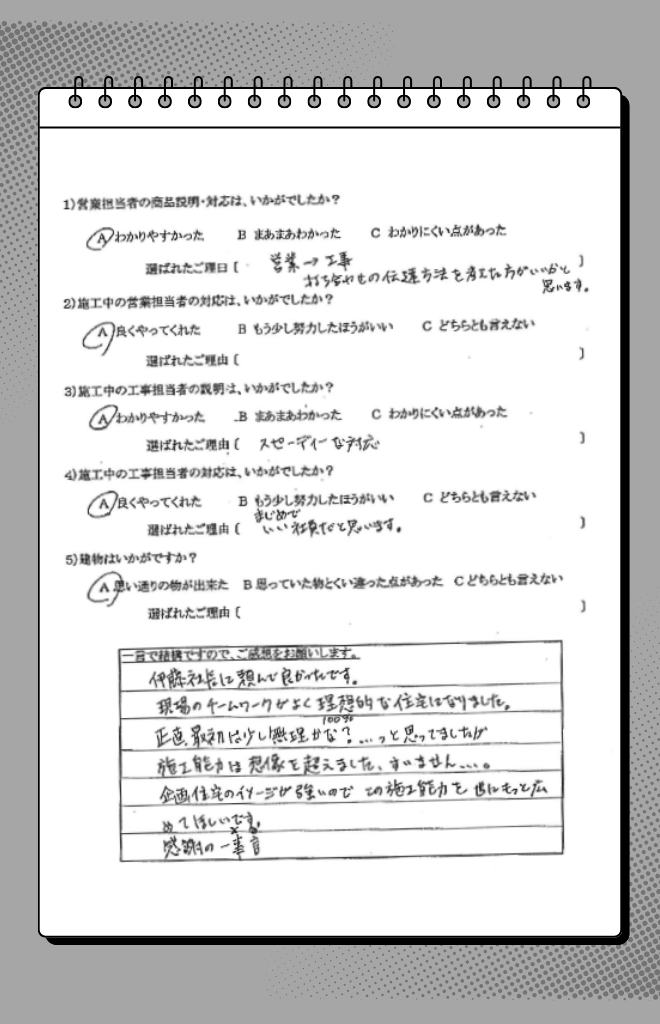 1)営業担当者の商品説明・対応は、いかがでしたか？
A わかりやすかった　B まあまあわかった　C わかりにくい点があった
選ばれたご理由〔　営業→工事　〕
打ち合わせの伝達方法を考えた方がいいかと
思います。
2)施工中の営業担当者の対応は、いかがでしたか？
A 良くやってくれた　B もう少し努力したほうがいい　C どちらとも言えない
選ばれたご理由〔　〕
3)施工中の工事担当者の説明は、いかがでしたか？
A わかりやすかった　B まあまあわかった　C わかりにくい点があった
選ばれたご理由〔　スピーディーな対応　〕
4)施工中の工事担当者の対応は、いかがでしたか？
A 良くやってくれた　B もう少し努力したほうがいい　C どちらとも言えない
まじめで
選ばれたご理由〔　いい社員だと思います。　〕
5)建物はいかがですか？
A 思い通りの物が出来た　B 思っていた物とくい違った点があった　C どちらとも言えない
選ばれたご理由〔　〕
一言で結構ですので、ご感想をお願いします。
伊藤社長に頼んで良かったです。
現場のチームワークがよく理想的な住宅になりました。
100%
正直、最初は少し無理かな？…っと思ってましたが
施工能力は想像を超えました、すいません…。
企画住宅のイメージが強いので この施工能力を 世にもっと広
めてほしいです。
感謝の一言